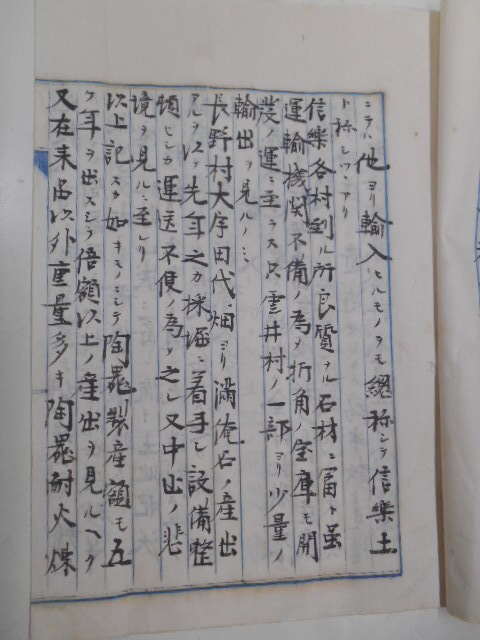 ニテハ他ヨリ輸入セルモノヲモ總稱シテ信樂土
ト称シツヽアリ
信樂各村到ル所良質ナル石材ニ富ト虽
運輸機関不備ノ為メ折角ノ宝庫モ開
発ノ運ニ至ラス只雲井村ノ一部ヨリ少量ノ
輸出ヲ見ルノミ
長野村大字田代、畑ヨリ満俺石ノ産出
アルヲ以テ先年之カ採堀ニ着手シ設備整
頓セシカ運送不便ノ為メ之レ又中止ノ悲
境ヲ見ルニ至レリ
以上記スカ如キモノニシテ陶器製産額モ五
ケ年ヲ出スシテ倍額以上ノ産出ヲ見ルヘク
又在来品以外重量多キ陶器耐火煉